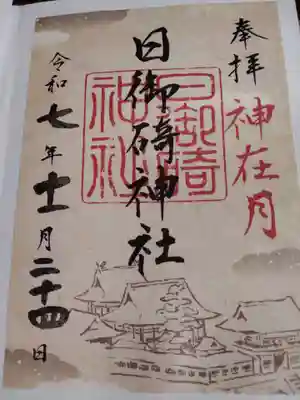 奉拝
神在月
日御碕神社
日御碕神社
令和七年十一月二十四日